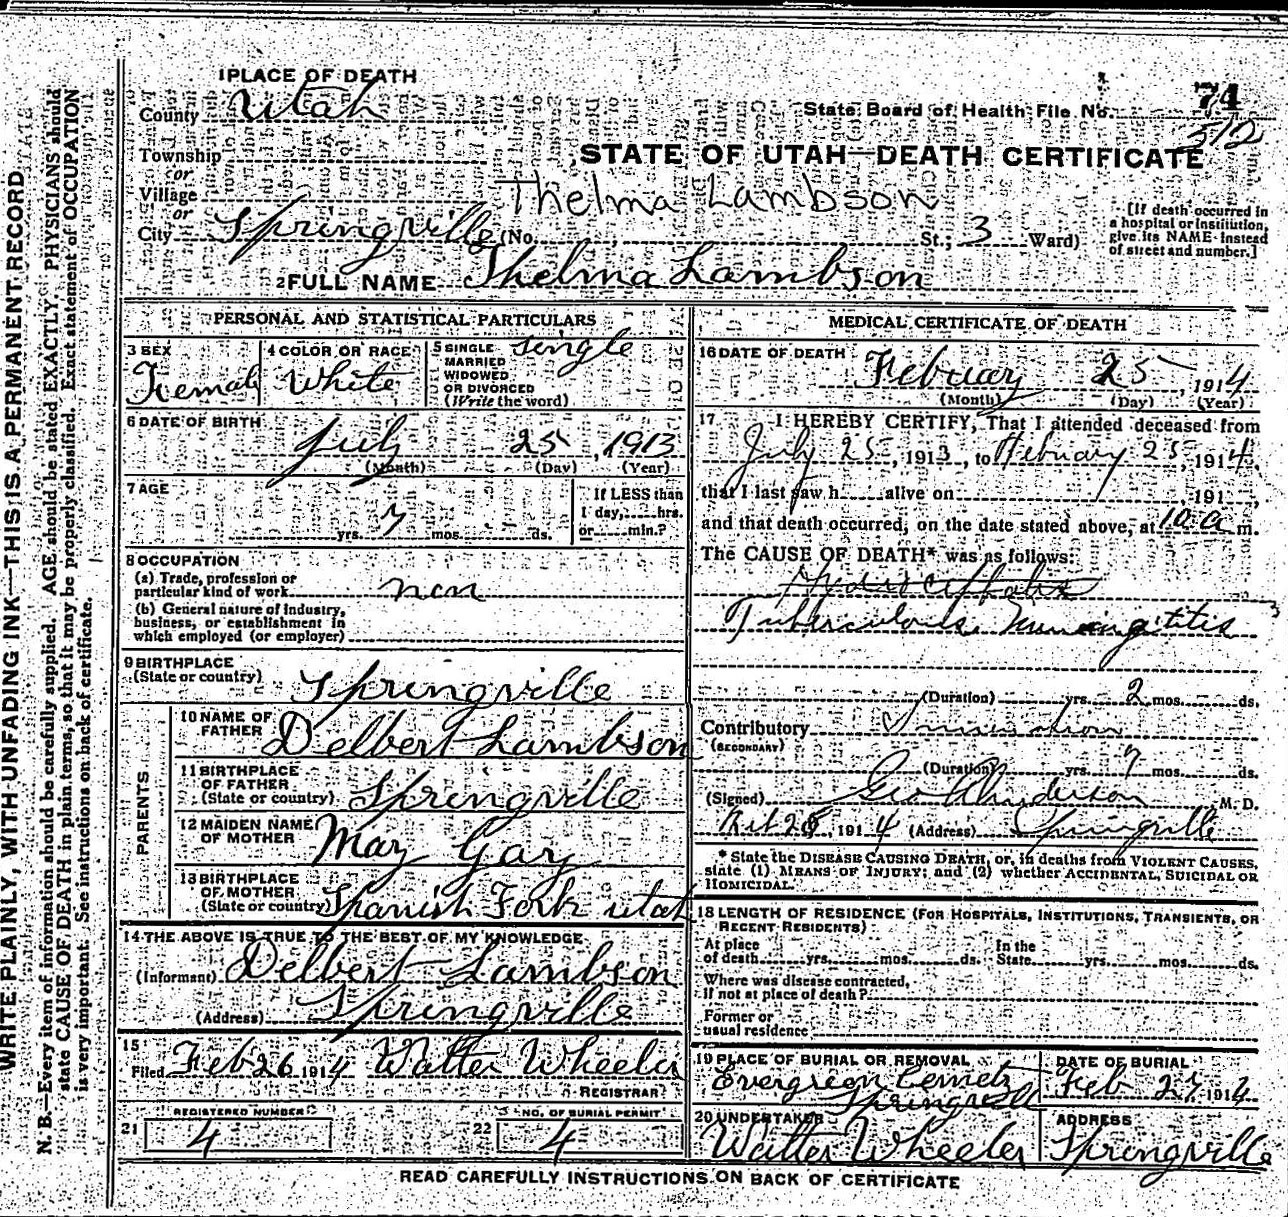 WRITE PLAINLY, WITH UNFADING INK—THIS IS A PERMANENT RECORD
N. B.—Every item of information should be carefully supplied. AGE should be stated EXACTLY. PHYSICIANS should
state CAUSE OF DEATH in plain terms, so that it may be properly classified. Exact statement of OCCUPATION
is very important. See instructions on back of certificate.
1 PLACE OF DEATH
County Utah
State Board of Health File No. 74
512
Township
or
Village
or
City Springville (No. , St.; 3 Ward)
STATE OF UTAH—DEATH CERTIFICATE
Thelma Lambson
[If death occurred in
a hospital or institution,
give its NAME instead
of street and number.]
2 FULL NAME Thelma Lambson
PERSONAL AND STATISTICAL PARTICULARS
3 SEX
Female
4 COLOR OR RACE
White
5 SINGLE
MARRIED
WIDOWED
OR DIVORCED
(Write the word)
single
6 DATE OF BIRTH
July 25, 1913
(Month) (Day) (Year)
7 AGE
yrs. 7 mos. ds.
If LESS than
1 day, hrs.
or min.?
8 OCCUPATION
(a) Trade, profession or
particular kind of work non
(b) General nature of industry,
business, or establishment in
which employed (or employer)
9 BIRTHPLACE
(State or country) Springville
PARENTS
10 NAME OF
FATHER Delbert Lambson
11 BIRTHPLACE
OF FATHER
(State or country) Springville
12 MAIDEN NAME
OF MOTHER May Gay
13 BIRTHPLACE
OF MOTHER
(State or country) Spanish Fork utah
14 THE ABOVE IS TRUE TO THE BEST OF MY KNOWLEDGE
(Informant) Delbert Lambson
(Address) Springville
15
Filed Feb 26 1914 Walter Wheeler
REGISTRAR
21 REGISTERED NUMBER
4
22 NO. OF BURIAL PERMIT
4
MEDICAL CERTIFICATE OF DEATH
16 DATE OF DEATH
February 25, 1914
(Month) (Day) (Year)
17 I HEREBY CERTIFY, That I attended deceased from
July 25, 1913, to February 25, 1914,
that I last saw h alive on , 191 ,
and that death occurred, on the date stated above, at 10 a m.
The CAUSE OF DEATH* was as follows:
Tuberculous
(Duration) yrs. 2 mos. ds.
Contributory
(SECONDARY)
(Duration) yrs. 7 mos. ds.
(Signed) Geo Anderson M. D.
1914 (Address) Springville
* State the DISEASE CAUSING DEATH, or, in deaths from VIOLENT CAUSES,
state (1) MEANS OF INJURY; and (2) whether ACCIDENTAL, SUICIDAL OR
HOMICIDAL.
18 LENGTH OF RESIDENCE (FOR HOSPITALS, INSTITUTIONS, TRANSIENTS, OR
RECENT RESIDENTS)
At place
of death yrs. mos. ds.
In the
State yrs. mos. ds.
Where was disease contracted,
If not at place of death?
Former or
usual residence
19 PLACE OF BURIAL OR REMOVAL
Evergreen
Springville
DATE OF BURIAL
Feb 27 1914
20 UNDERTAKER
Walter Wheeler
ADDRESS
Springville
READ CAREFULLY INSTRUCTIONS ON BACK OF CERTIFICATE